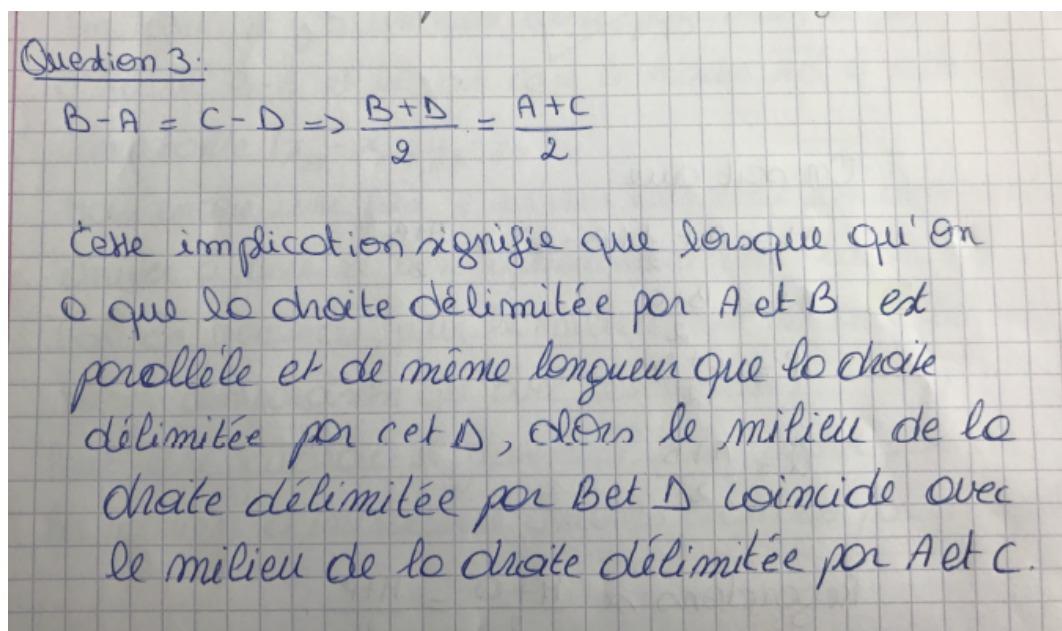 Question 3:
B-A = C-D => (B+D)/2 = (A+C)/2
Cette implication signifie que lorsque qu'on
a que la droite délimitée par A et B est
parallèle et de même longueur que la droite
délimitée par C et D, alors le milieu de la
droite délimitée par B et D coincide avec
le milieu de la droite délimitée par A et C.